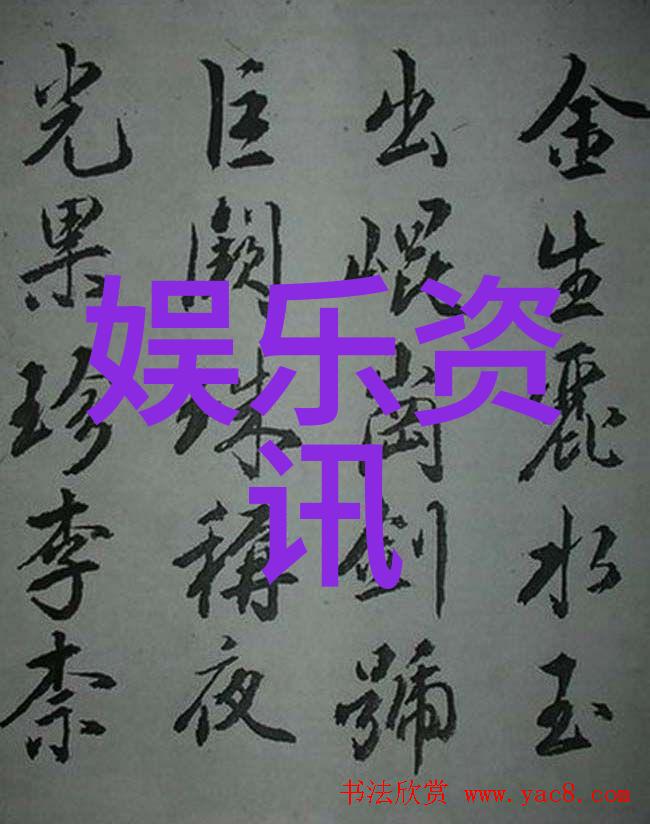 金生麗水玉
出崐崗剑號
巨闕珠稱夜
光果珍李柰
娱乐资
讯
书法欣赏 www.yac8.com